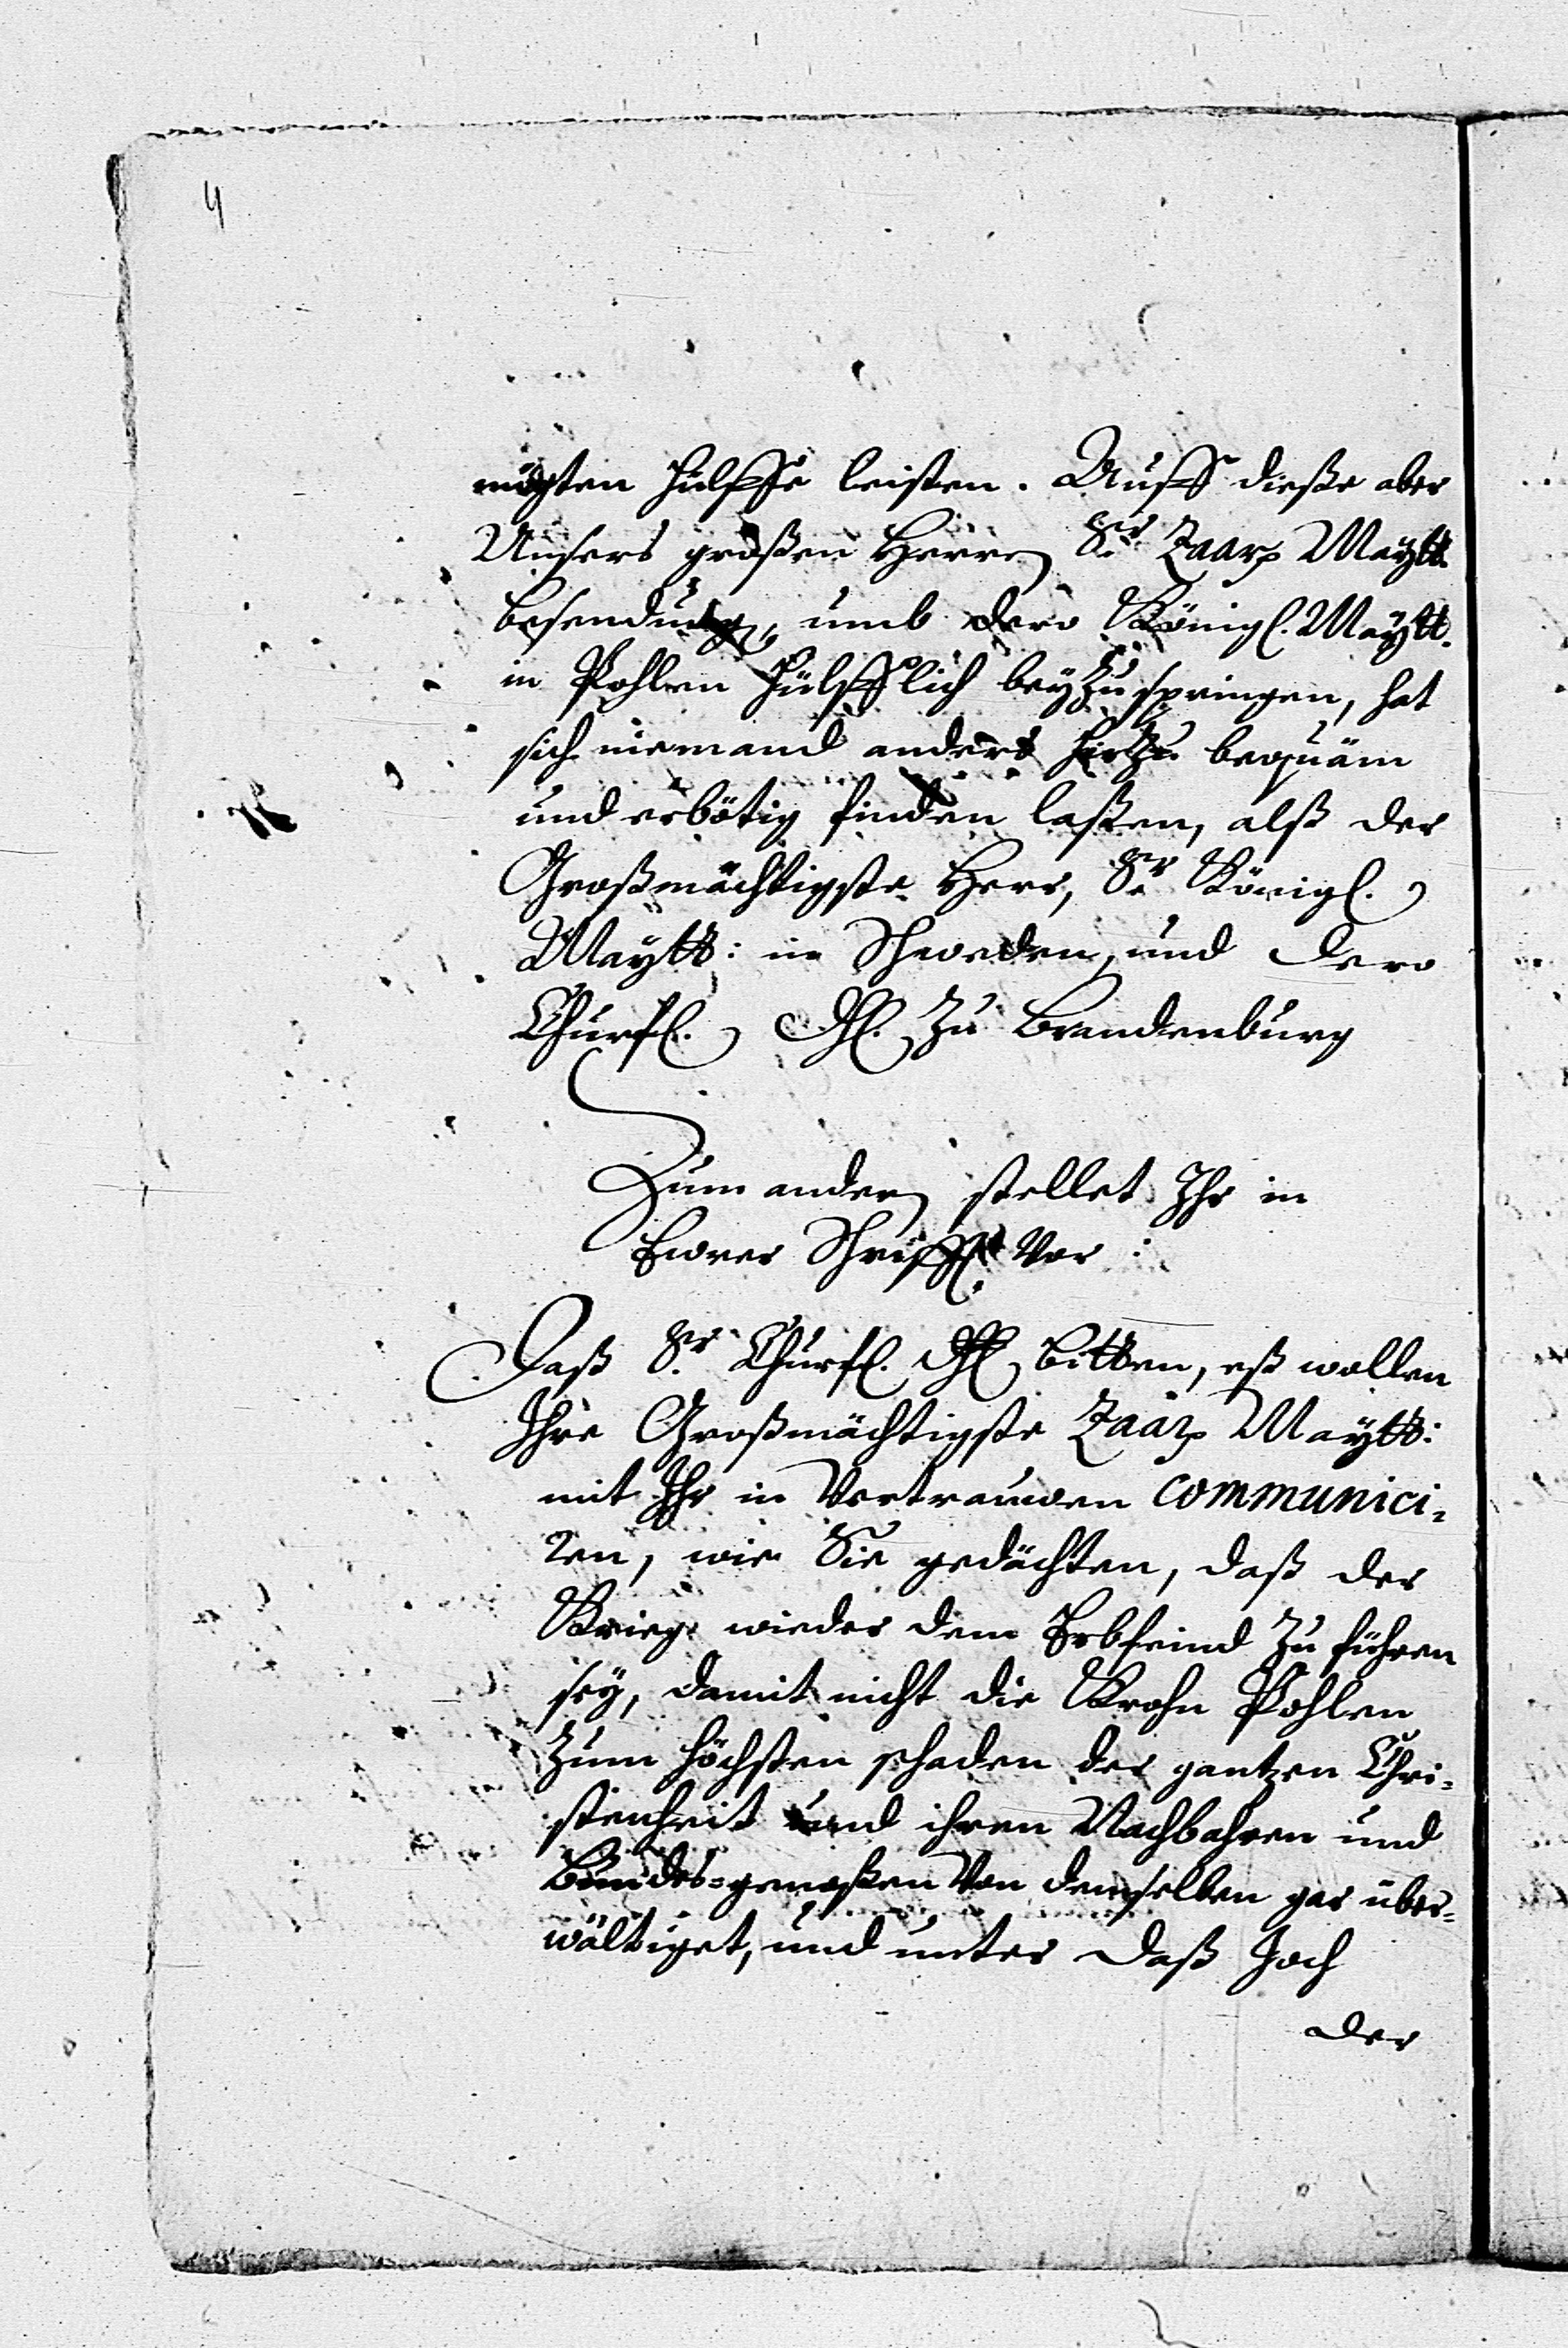 4
mögten hülffe leisten. Auff dieße aber
Unsers großen Herren Sr Zaarn Maytt.
besendung, umb dero Königl. Maytt.
in Pohlen hülfflich beyZuspringen, hat
sich niemand anders hirZu bequäm
und erbötig finden laßen, alß der
Großmächtigste Herr, Sr Königl.
Maytt: in Schweden, und dero
Churfl. Dhl. Zu Brandenburg
Zum andern stellet Ihr in
Eurer Schrifft Vor:
Daß Sr Churfl. Dhl bitten, eß wollen
Ihre Großmächtigste Zaarn Maytt:
mit Ihr in Vertrauwen communici-
ren, wie Sie gedächten, daß der
Krieg wieder dem Erbfeind Zu führen
sey, damit nicht die Krohn Pohlen
Zum höchsten schaden der gantzen Chri-
stenheit und ihren Nachbahren und
Bundes-genoßen Von demselben gar über-
wältiget, und unter daß Joch
der